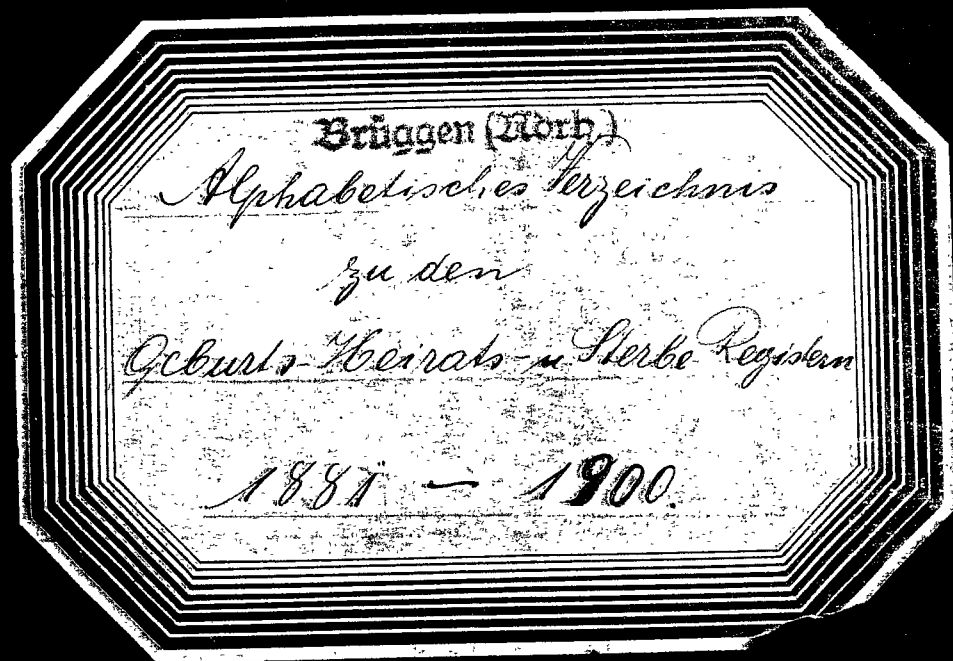 Brüggen (Nörb.)
Alphabetisches Verzeichnis
zu den
Geburts-Heirats-u Sterbe Registern
1881 — 1900.